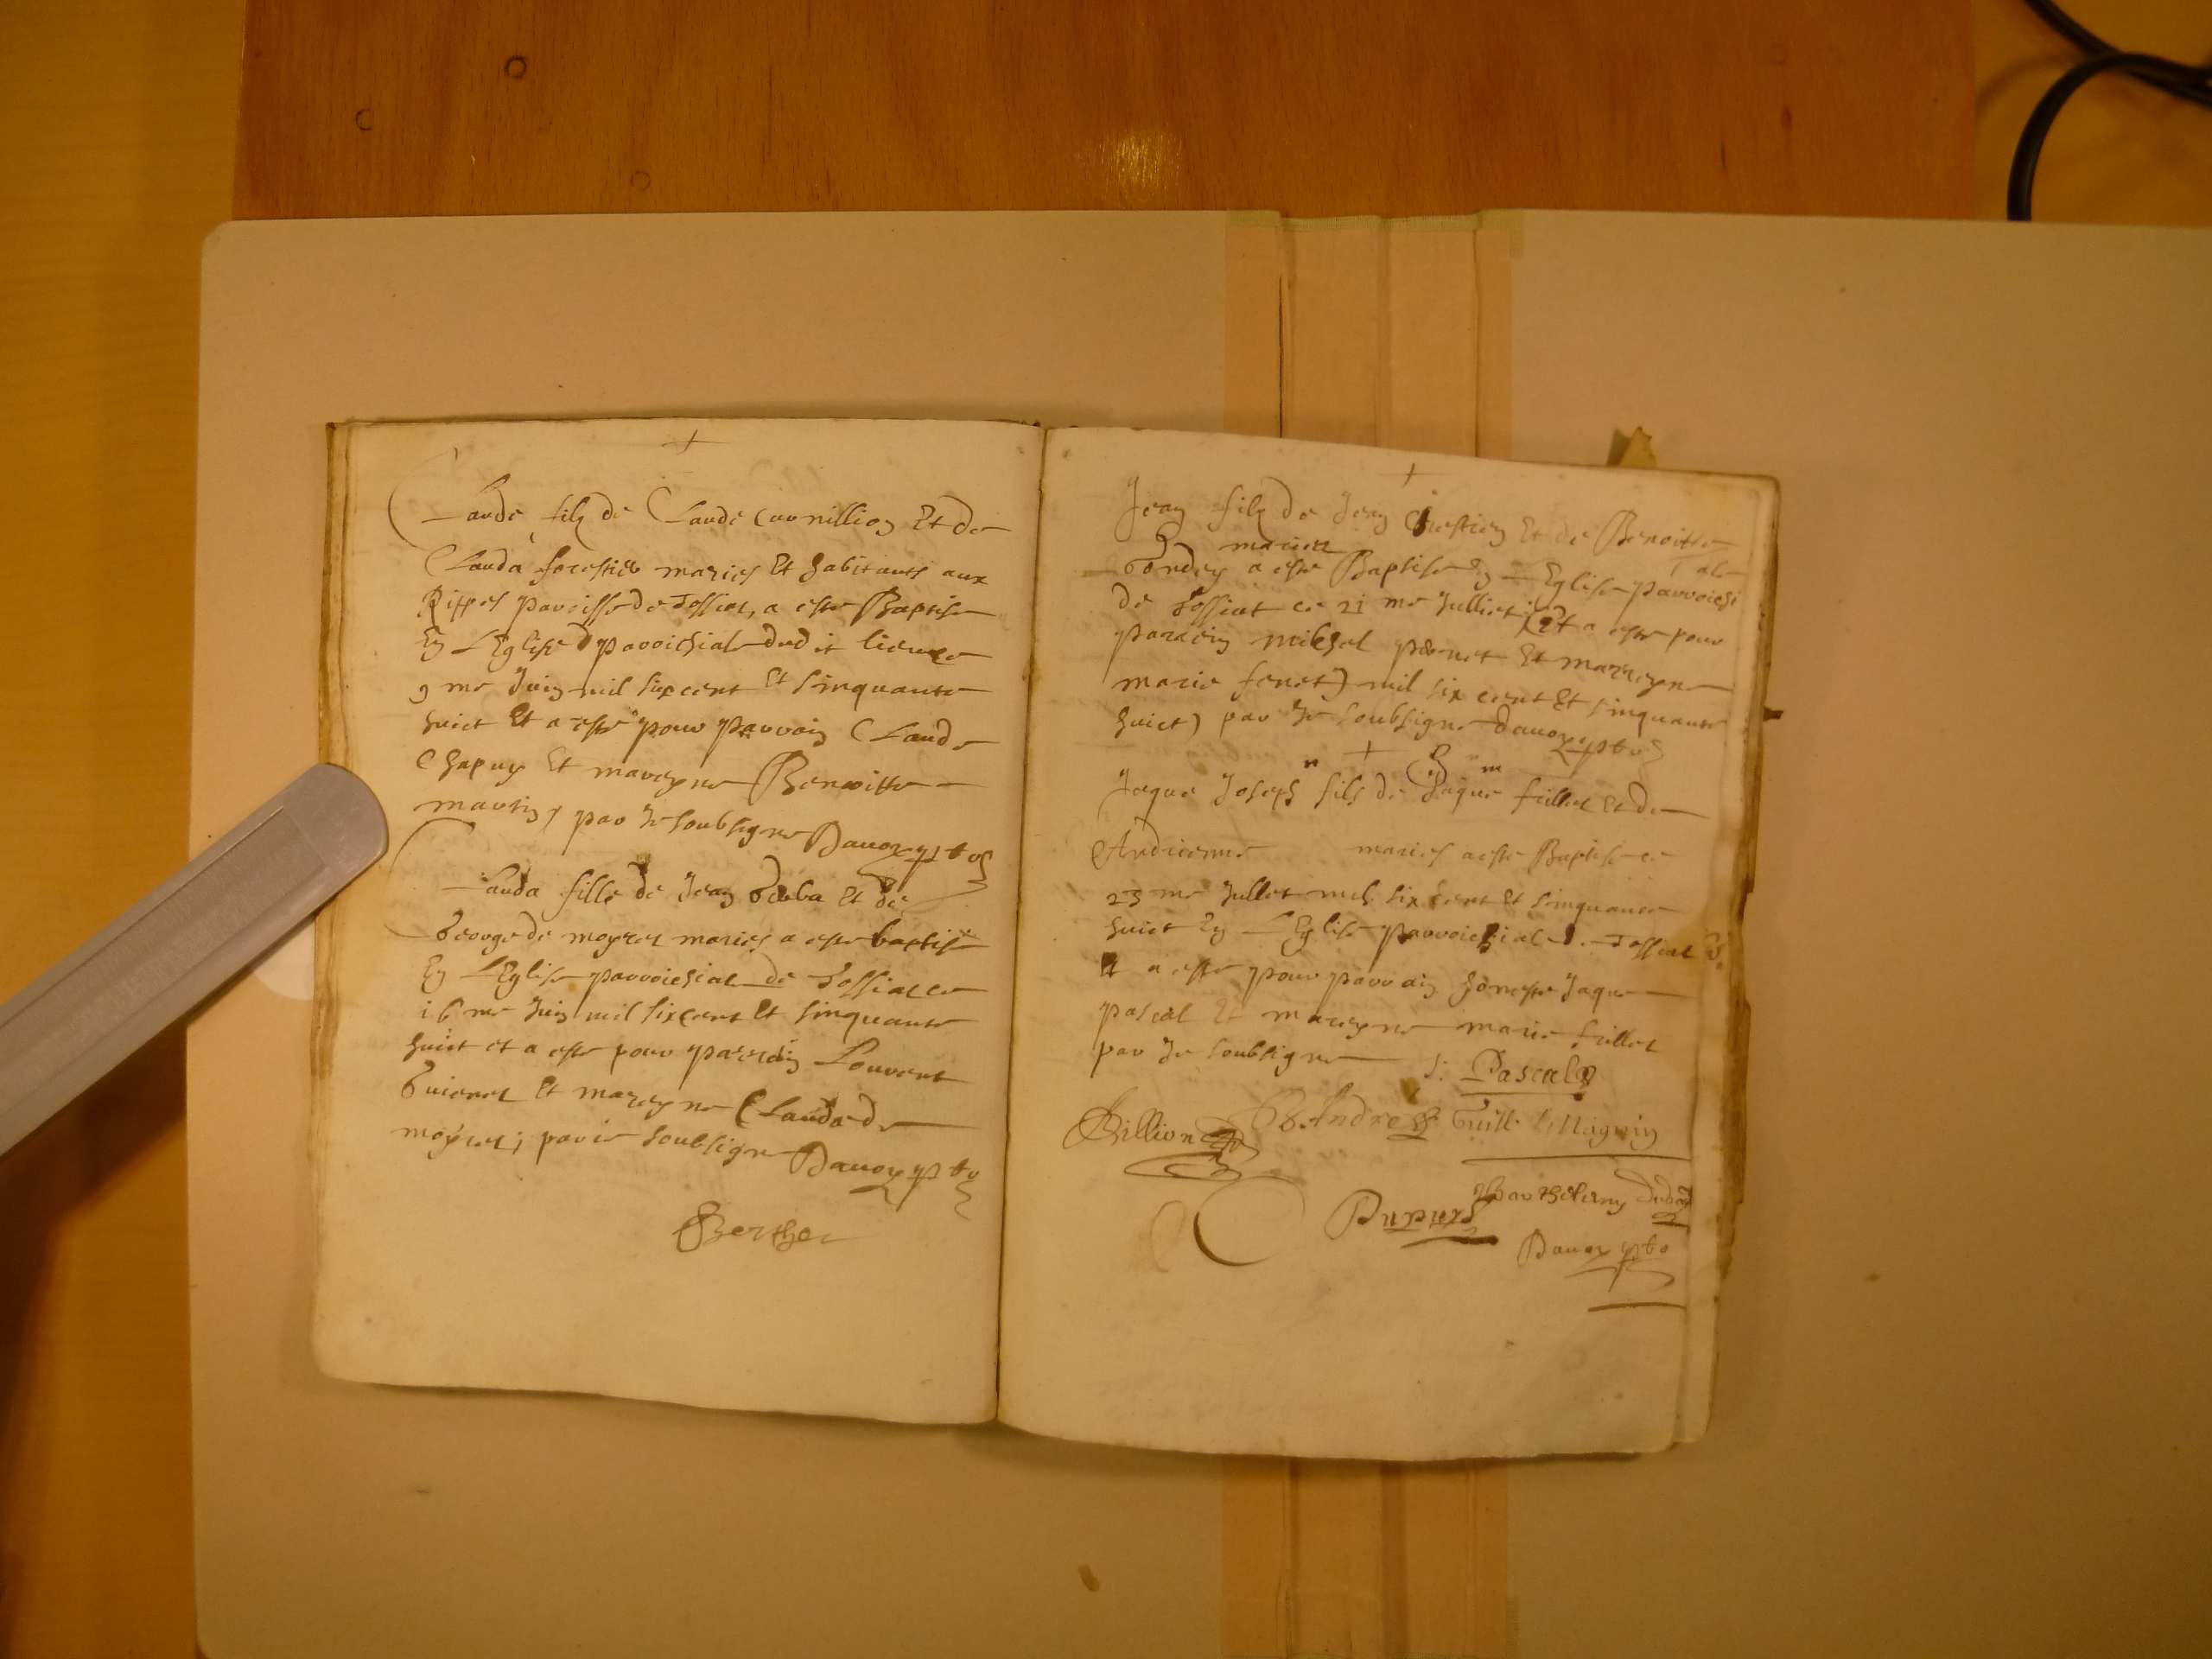 +
Claude filz de Claude Curnillion Et de
Clauda forestier mariés Et habitants aux
Rippes parroisse de Tossiat, a esté Baptisé
En L'Eglise parroichiale dudit lieu ce
9 me Juin mil six cent Et sinquante
huict Et a esté pour parrain Claude
Chapuy Et mareyne Benoitte
martin, par Je soubsigné Dauoy pbr
Clauda fille de Jean Et de
George de moyret mariés a esté baptisé
En L'Eglise parroichiale de Tossiat ce
16 me Juin mil six cent Et sinquante
huict et a esté pour parrain Louvent
Guienet Et mareyne Clauda de
moyret, par ie soubsigné Dauoy pbr
Berthet
+
Jean filz de Jean Et de Benoitte
mariez
Gondey a esté Baptisé En L'Eglise parroichi
ale
de Tossiat ce 21 me Julliet (Et a esté pour
parrein michel pernet Et marreyne
marie fenet) mil six cent Et sinquante
huict) par Je soubsigné Dauoy pbr
+
Jaque Joseph fils de Jaque fillet Et de
Andrienne mariés a esté Baptisé ce
23 me Jullet mil six cent Et sinquante
huict En L'Eglise parroichiale d. Tossiat
Et a esté pour parrain honeste Jaque
pascal Et mareyne marie fillet
par Je soubsigné J. Pascal
Billion B. Andre Guill. Magnin
Barthelemy
Dupuys
Dauoy pbr